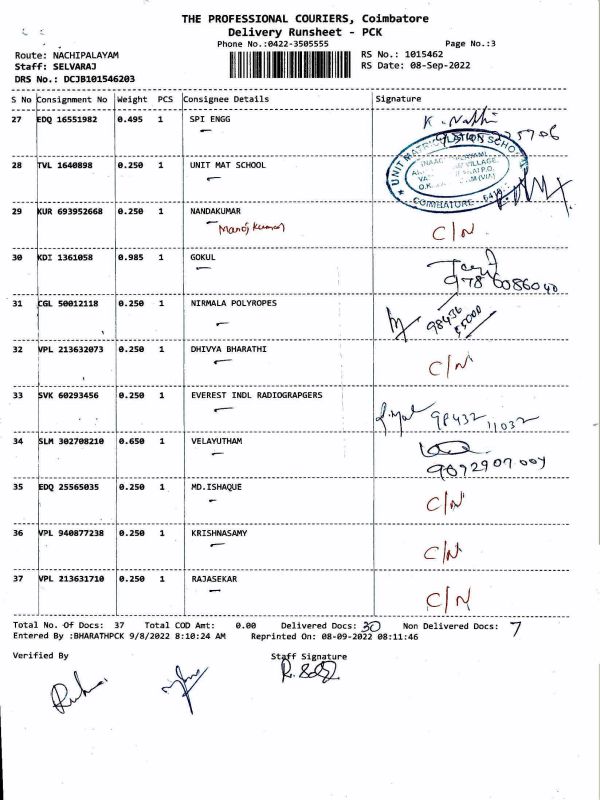 THE PROFESSIONAL COURIERS, Coimbatore
Delivery Runsheet - PCK
Phone No.:0422-3505555
Page No.:3
Route: NACHIPALAYAM
RS No.: 1015462
Staff: SELVARAJ
RS Date: 08-Sep-2022
DRS No.: DCJB101546203
S No Consignment No Weight PCS Consignee Details Signature
27 EDQ 16551982 0.495 1 SPI ENGG
28 TVL 1640898 0.250 1 UNIT MAT SCHOOL
UNIT MATRICULATION SCHOOL
COIMBATORE
29 KUR 693952668 0.250 1 NANDAKUMAR
Manoj Kumar C/N
30 KDI 1361058 0.985 1 GOKUL
31 CGL 50012118 0.250 1 NIRMALA POLYROPES
98436
55000
32 VPL 213632073 0.250 1 DHIVYA BHARATHI
C/N
33 SVK 60293456 0.250 1 EVEREST INDL RADIOGRAPGERS
98432 11032
34 SLM 302708210 0.650 1 VELAYUTHAM
35 EDQ 25565035 0.250 1 MD.ISHAQUE
C/N
36 VPL 940877238 0.250 1 KRISHNASAMY
C/N
37 VPL 213631710 0.250 1 RAJASEKAR
C/N
Total No. Of Docs: 37 Total COD Amt: 0.00 Delivered Docs: 30 Non Delivered Docs: 7
Entered By :BHARATHPCK 9/8/2022 8:10:24 AM Reprinted On: 08-09-2022 08:11:46
Verified By Staff Signature